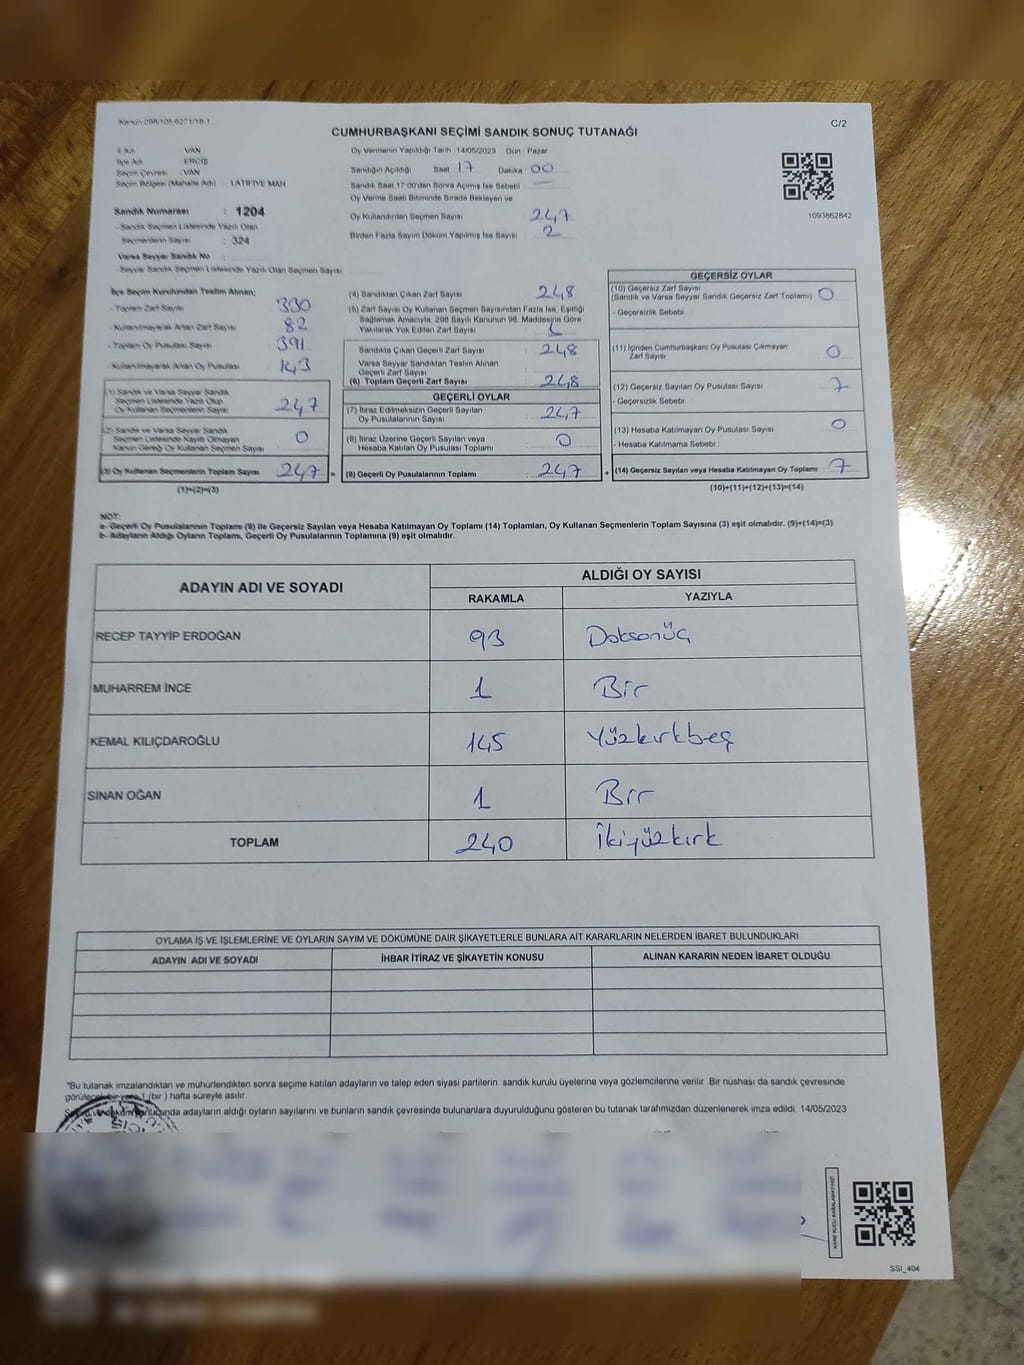 Kanun:298/105.6271/18-1
C/2
CUMHURBAŞKANI SEÇİMİ SANDIK SONUÇ TUTANAĞI
İl Adı VAN
İlçe Adı ERCİŞ
Seçim Çevresi : VAN
Seçim Bölgesi (Mahalle Adı) : LATİFİYE MAH
Sandık Numarası : 1204
- Sandık Seçmen Listesinde Yazılı Olan
Seçmenlerin Sayısı : 324
Varsa Seyyar Sandık No
- Seyyar Sandık Seçmen Listesinde Yazılı Olan Seçmen Sayısı
Oy Vermenin Yapıldığı Tarih : 14/05/2023 Gün : Pazar
Sandığın Açıldığı Saat 17 Dakika 00
Sandık Saat 17:00'den Sonra Açılmış İse Sebebi :
Oy Verme Saati Bitiminde Sırada Bekleyen ve
Oy Kullandırılan Seçmen Sayısı 247
Birden Fazla Sayım Döküm Yapılmış İse Sayısı 2
1093862842
İlçe Seçim Kurulundan Teslim Alınan;
- Toplam Zarf Sayısı 330
- Kullanılmayarak Artan Zarf Sayısı 82
- Toplam Oy Pusulası Sayısı 391
- Kullanılmayarak Artan Oy Pusulası 143
(1) Sandık ve Varsa Seyyar Sandık
Seçmen Listesinde Yazılı Olup
Oy Kullanan Seçmenlerin Sayısı 247
(2) Sandık ve Varsa Seyyar Sandık
Seçmen Listesinde Kayıtlı Olmayan
Kanun Gereği Oy Kullanan Seçmen Sayısı 0
(3) Oy Kullanan Seçmenlerin Toplam Sayısı 247 =
(1)+(2)=(3)
(4) Sandıktan Çıkan Zarf Sayısı 248
(5) Zarf Sayısı Oy Kullanan Seçmen Sayısından Fazla İse, Eşitliği
Sağlamak Amacıyla, 298 Sayılı Kanunun 98. Maddesine Göre
Yakılarak Yok Edilen Zarf Sayısı 1
Sandıkta Çıkan Geçerli Zarf Sayısı 248
Varsa Seyyar Sandıktan Teslim Alınan
Geçerli Zarf Sayısı
(6) Toplam Geçerli Zarf Sayısı 248
GEÇERLİ OYLAR
(7) İtiraz Edilmeksizin Geçerli Sayılan
Oy Pusulasının Sayısı 247
(8) İtiraz Üzerine Geçerli Sayılan veya
Hesaba Katılan Oy Pusulası Toplamı 0
(9) Geçerli Oy Pusulalarının Toplamı : 247 +
GEÇERSİZ OYLAR
(10) Geçersiz Zarf Sayısı
(Sandık ve Varsa Seyyar Sandık Geçersiz Zarf Toplamı) 0
- Geçersizlik Sebebi :
(11) İçinden Cumhurbaşkanı Oy Pusulası Çıkmayan
Zarf Sayısı 0
(12) Geçersiz Sayılan Oy Pusulası Sayısı 7
- Geçersizlik Sebebi :
(13) Hesaba Katılmayan Oy Pusulası Sayısı 0
- Hesaba Katılmama Sebebi :
(14) Geçersiz Sayılan veya Hesaba Katılmayan Oy Toplamı 7
(10)+(11)+(12)+(13)=(14)
NOT:
a- Geçerli Oy Pusulalarının Toplamı (9) ile Geçersiz Sayılan veya Hesaba Katılmayan Oy Toplamı (14) Toplamları, Oy Kullanan Seçmenlerin Toplam Sayısına (3) eşit olmalıdır. (9)+(14)=(3)
b- Adayların Aldığı Oyların Toplamı, Geçerli Oy Pusulalarının Toplamına (9) eşit olmalıdır.
ADAYIN ADI VE SOYADI ALDIĞI OY SAYISI
RAKAMLA YAZIYLA
RECEP TAYYİP ERDOĞAN 93 Doksanüç
MUHARREM İNCE 1 Bir
KEMAL KILIÇDAROĞLU 145 Yüzkırkbeş
SİNAN OĞAN 1 Bir
TOPLAM 240 İkiyüzkırk
OYLAMA İŞ VE İŞLEMLERİNE VE OYLARIN SAYIM VE DÖKÜMÜNE DAİR ŞİKAYETLERLE BUNLARA AİT KARARLARIN NELERDEN İBARET BULUNDUKLARI
ADAYIN ADI VE SOYADI İHBAR İTİRAZ VE ŞİKAYETİN KONUSU ALINAN KARARIN NEDEN İBARET OLDUĞU
"Bu tutanak imzalandıktan ve mühürlendikten sonra seçime katılan adayların ve talep eden siyasi partilerin sandık kurulu üyelerine veya gözlemcilerine verilir. Bir nüshası da sandık çevresinde
görülecek bir yere 1 (bir ) hafta süreyle asılır.
adayların aldığı oyların sayılarını ve bunların sandık çevresinde bulunanlara duyurulduğunu gösteren bu tutanak tarafımızdan düzenlenerek imza edildi. 14/05/2023
SSI_404